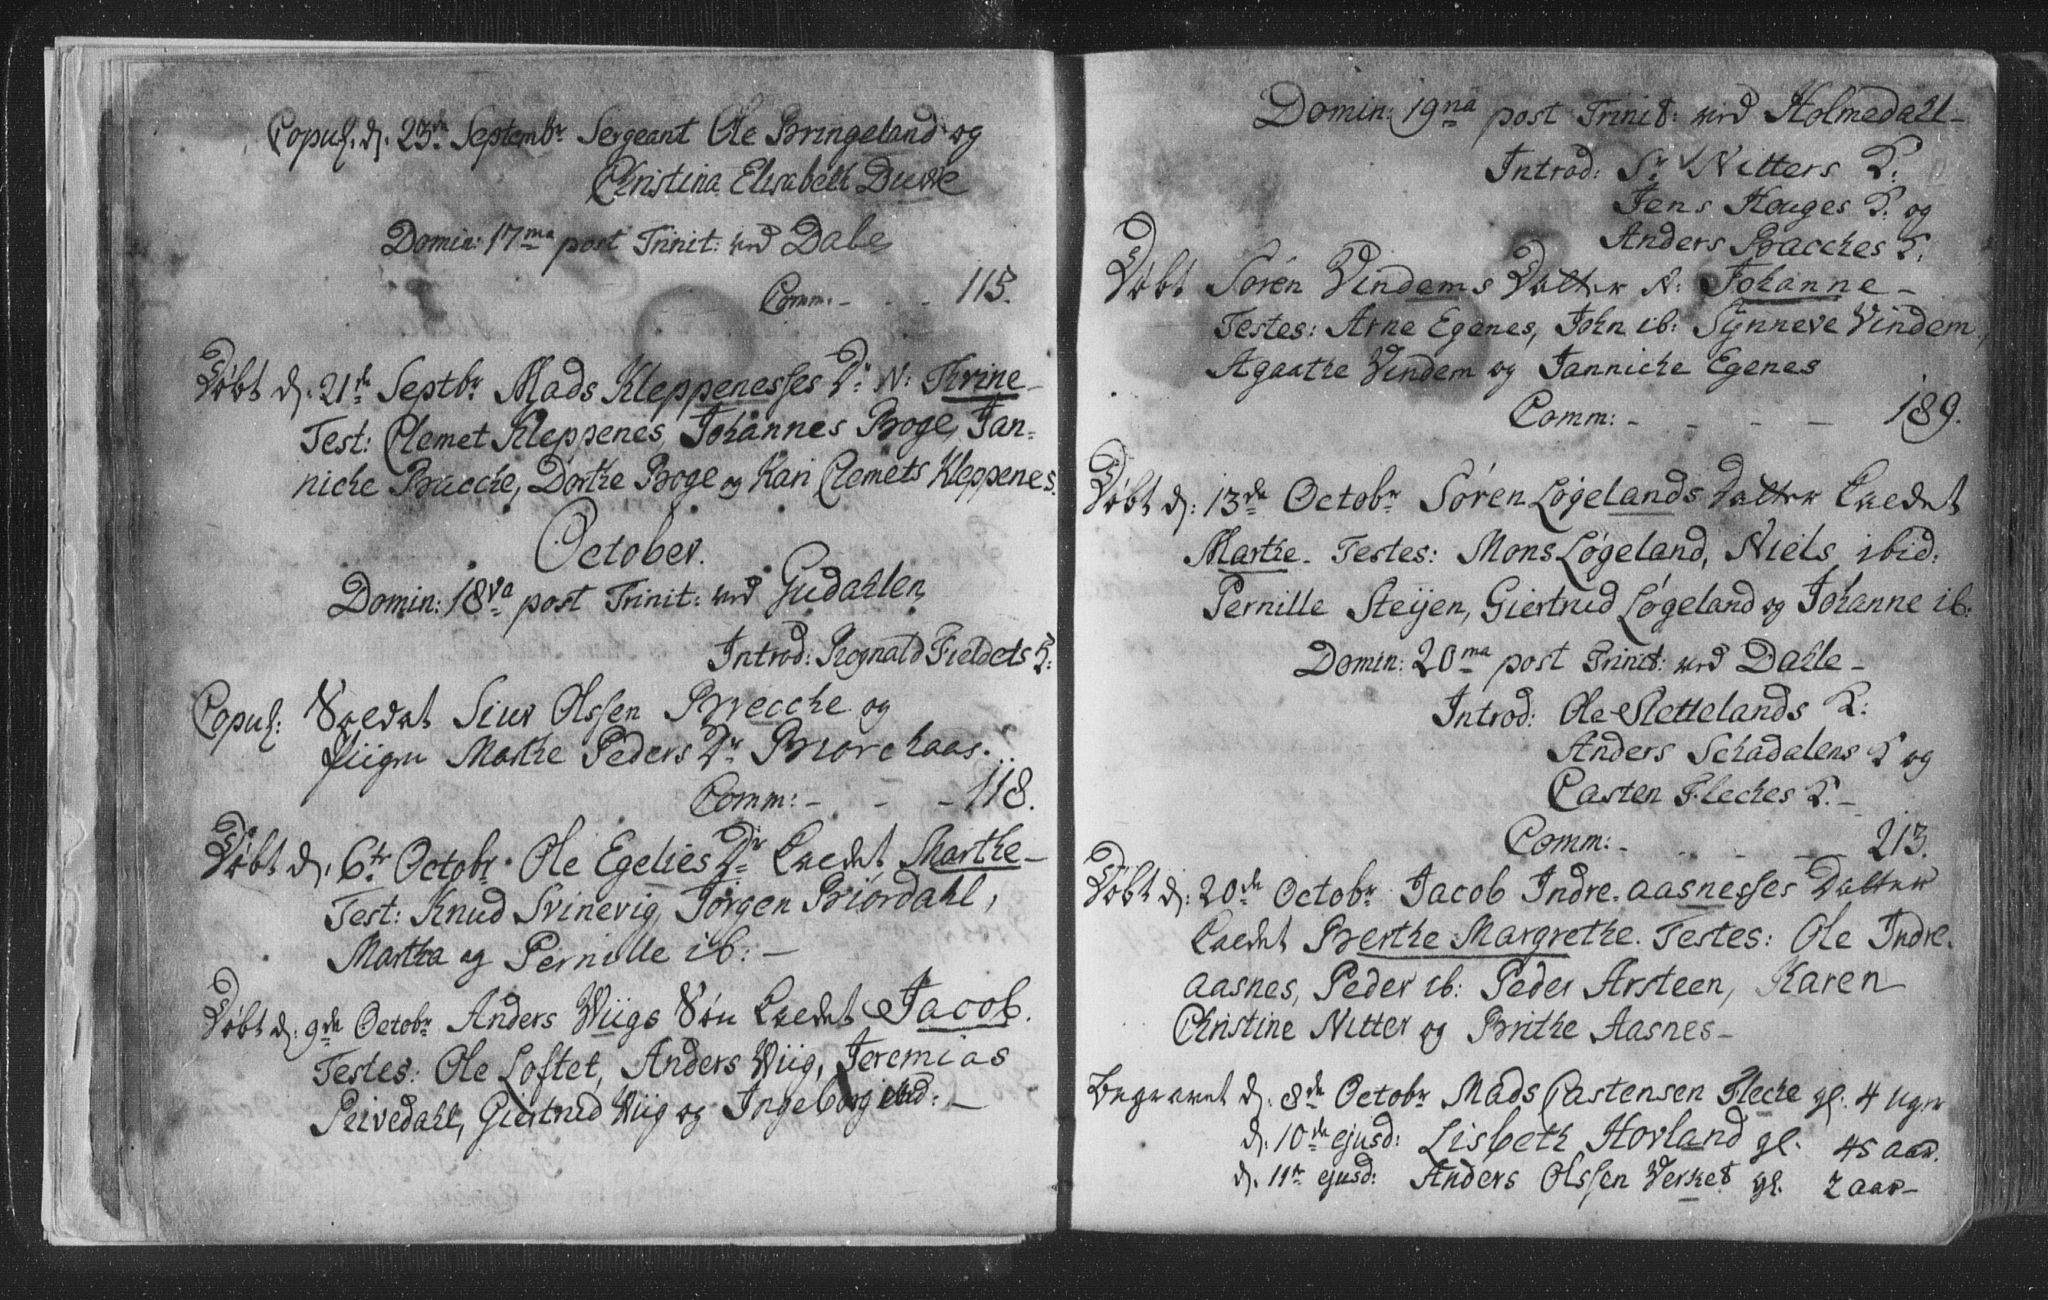 Copul. d. 23de Septembr Sergeant Ole Bringeland og
Christina Elisabeth Duvre
Domin: 17ma post Trinit: ved Dale
Comm: - - - 115.
Døbt d. 21de Septbr Mads Kleppenesses Dr N: Thrine -
Test: Clemet Kleppenes, Johannes Boge, Jan-
niche Bracche, Dorthe Boge og Kari Clemets Kleppenes.
October.
Domin: 18va post Trinit: ved Gudahlen
Introd: Rognald Fieldets K:
Copul: Soldat Siur Olssen Brecche og
Piigen Marthe Peders Dr Biorchaas.
Comm: - - - 118.
Døbt d. 6te Octobr Ole Egelies Dr kaldet Marthe -
Test: Knud Svinevig, Jørgen Biørdahl,
Martha og Pernille ib: -
Døbt d: 9de Octobr Anders Wiigs Søn kaldet Jacob.
Testes: Ole Loftet, Anders Wiig, Jeremias
Peivedahl, Giertrud Wiig og Ingeborg ibid: -
Domin: 19na post Trinit: ved Holmedahl -
Introd: Sr Nitters K:
Jens Houges K: og
Anders Bracches K.
Døbt Søren Vindems Datter N: Johanne -
Testes: Arne Egenes, John ib: Synneve Vindem,
Agaathe Vindem og Janniche Egenes
Comm: - - - - 189.
Døbt d: 13de Octobr Søren Løgelands Datter kaldet
Marthe. Testes: Mons Løgeland, Niels ibid:
Pernille Steijen, Giertrud Løgeland og Johanne ib:
Domin: 20ma post Trinit: ved Dahle -
Introd: Ole Slettelands K:
Anders Schadalens K og
Casten Fleches K. -
Comm: - - - 213.
Døbt d: 20de Octobr Jacob Indre-aasnesses Datter
kaldet Berthe Margrethe. Testes: Ole Indre-
aasnes, Peder ib: Peder Arsteen, Karen
Christine Nitter og Brithe Aasnes -
Begravet d. 8de Octobr Mads Castensen Fleche gl. 4 uger
d. 10de ejusd: Lisbeth Hovland gl. 45 aar.
d. 11te ejusd: Anders Olssen Verket gl. 2 aar -